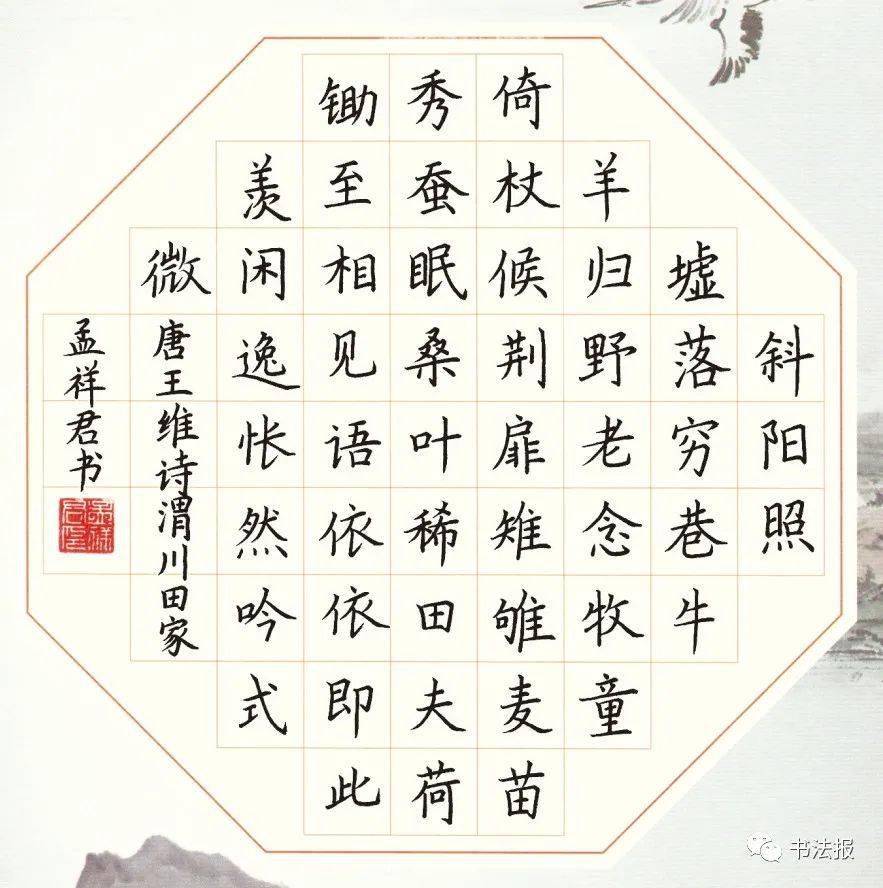 斜阳照
墟落穷巷牛
羊归野老念牧童
倚杖候荆扉雉雊麦苗
秀蚕眠桑叶稀田夫荷
锄至相见语依依即此
羡闲逸怅然吟式
微
唐王维诗渭川田家
孟祥君书
书法报